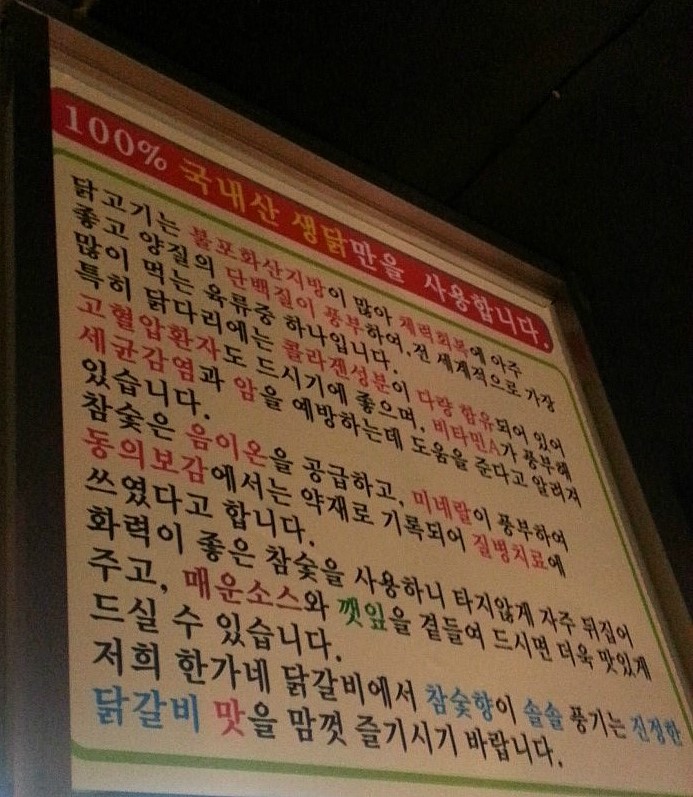 100% 국내산 생닭만을 사용합니다.
닭고기는 불포화산지방이 많아 체력회복에 아주
좋고 양질의 단백질이 풍부하여,전 세계적으로 가장
많이 먹는 육류중 하나입니다.
특히 닭다리에는 콜라겐성분이 다량 함유되어 있어
고혈압환자도 드시기에 좋으며, 비타민A가 풍부해
세균감염과 암을 예방하는데 도움을 준다고 알려져
있습니다.
참숯은 음이온을 공급하고, 미네랄이 풍부하여
동의보감에서는 약재로 기록되어 질병치료에
쓰였다고 합니다.
화력이 좋은 참숯을 사용하니 타지않게 자주 뒤집어
주고, 매운소스와 깻잎을 곁들여 드시면 더욱 맛있게
드실 수 있습니다.
저희 한가네 닭갈비에서 참숯향이 솔솔 풍기는 진정한
닭갈비 맛을 맘껏 즐기시기 바랍니다.